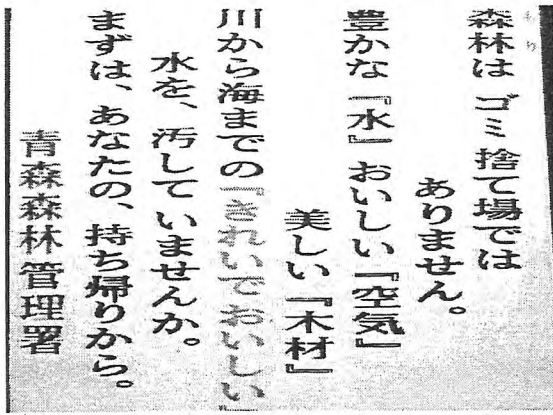 森林は ゴミ捨て場では
ありません。
豊かな『水』おいしい『空気』
美しい『木材』
川から海までの『きれいでおいしい』
水を、汚して いませんか。
まずは、あなたの、持ち帰りから。
青森森林管理署